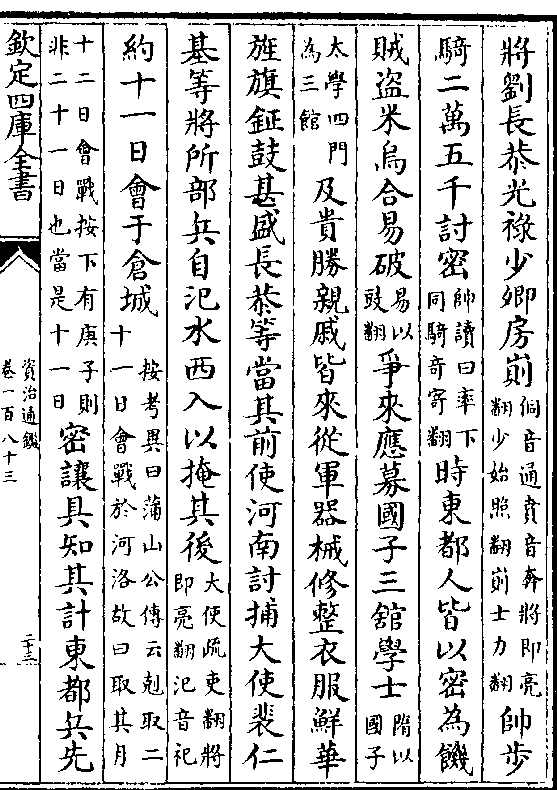 將劉長恭光祿少卿房崱侗音通賁音奔將即亮
翻少始照翻崱士力翻帥歩
騎二萬五千討密帥讀曰率下
同騎奇寄翻時東都人皆以密為饑
賊盜米烏合易破易以
豉翻爭來應募國子三舘學士隋以
國子
太學四門
為三館及貴勝親戚皆來從軍器械修整衣服鮮華
旌旗鉦鼓甚盛長恭等當其前使河南討捕大使裴仁
基等將所部兵自汜水西入以掩其後大使疏吏翻將
即亮翻汜音祀
約十一日會于倉城按考異曰蒲山公傳云剋取二
十一日會戰於河洛故曰取其月
十二日會戰按下有庚子則
非二十一日也當是十一日密讓具知其計東都兵先
欽定四庫全書
資治通鑑
卷一百八十三
二十三